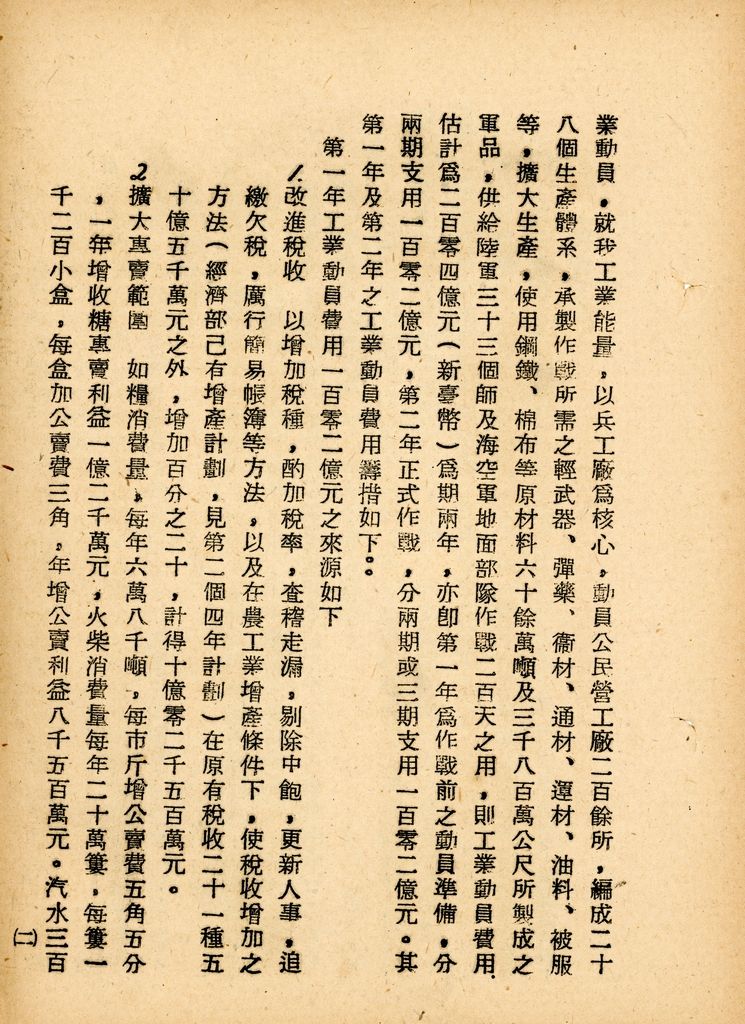 業動員，就我工業能量，以兵工廠爲核心，動員公民營工廠二百餘所，編成二十
八個生產體系，承製作戰所需之輕武器、彈藥、衞材、通材、運材、油料、被服
等，擴大生產，使用鋼鐵、棉布等原材料六十餘萬噸及三千八百萬公尺所製成之
軍品，供給陸軍三十三個師及海空軍地面部隊作戰二百天之用，則工業動員費用
估計爲二百零四億元（新臺幣）爲期兩年，亦卽第一年爲作戰前之動員準備，分
兩期支用一百零二億元，第二年正式作戰，分兩期或三期支用一百零二億元。其
第一年及第二年之工業動員費用籌措如下。。
第一年工業動員費用一百零二億元之來源如下
1.改進稅收　以增加稅種，酌加稅率，查稽走漏，剔除中飽，更新人事，追
繳欠稅，厲行簡易帳簿等方法，以及在農工業增產條件下，使稅收增加之
方法（經濟部已有增產計劃，見第二個四年計劃）在原有稅收二十一種五
十億五千萬元之外，增加百分之二十，計得十億零二千五百萬元。
2擴大專賣範圍　如糧消費量，每年六萬八千噸，每市斤增公賣費五角五分
，一年增收糖專賣利益一億二千萬元，火柴消費量每年二十萬簍，每簍一
千二百小盒，每盒加公賣費三角，年增公賣利益八千五百萬元。汽水三百
(二)